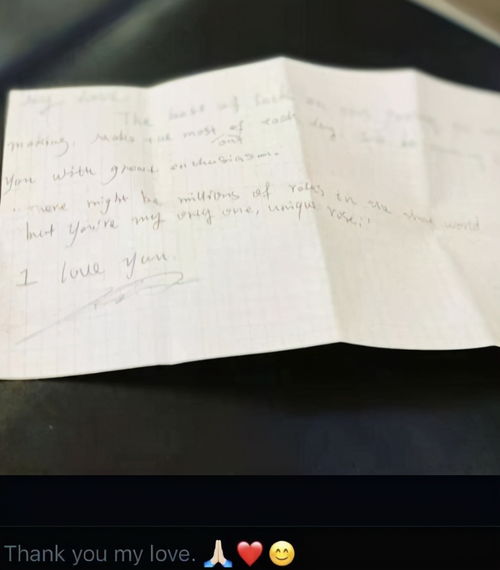 my love
The best of luck on
making. Make the most out of each day.
you with great enthusiasm.
"There might be millions of roses in the whole world
but you're my only one, unique rose."
I love you.
Thank you my love. 🙏🏻❤️😊